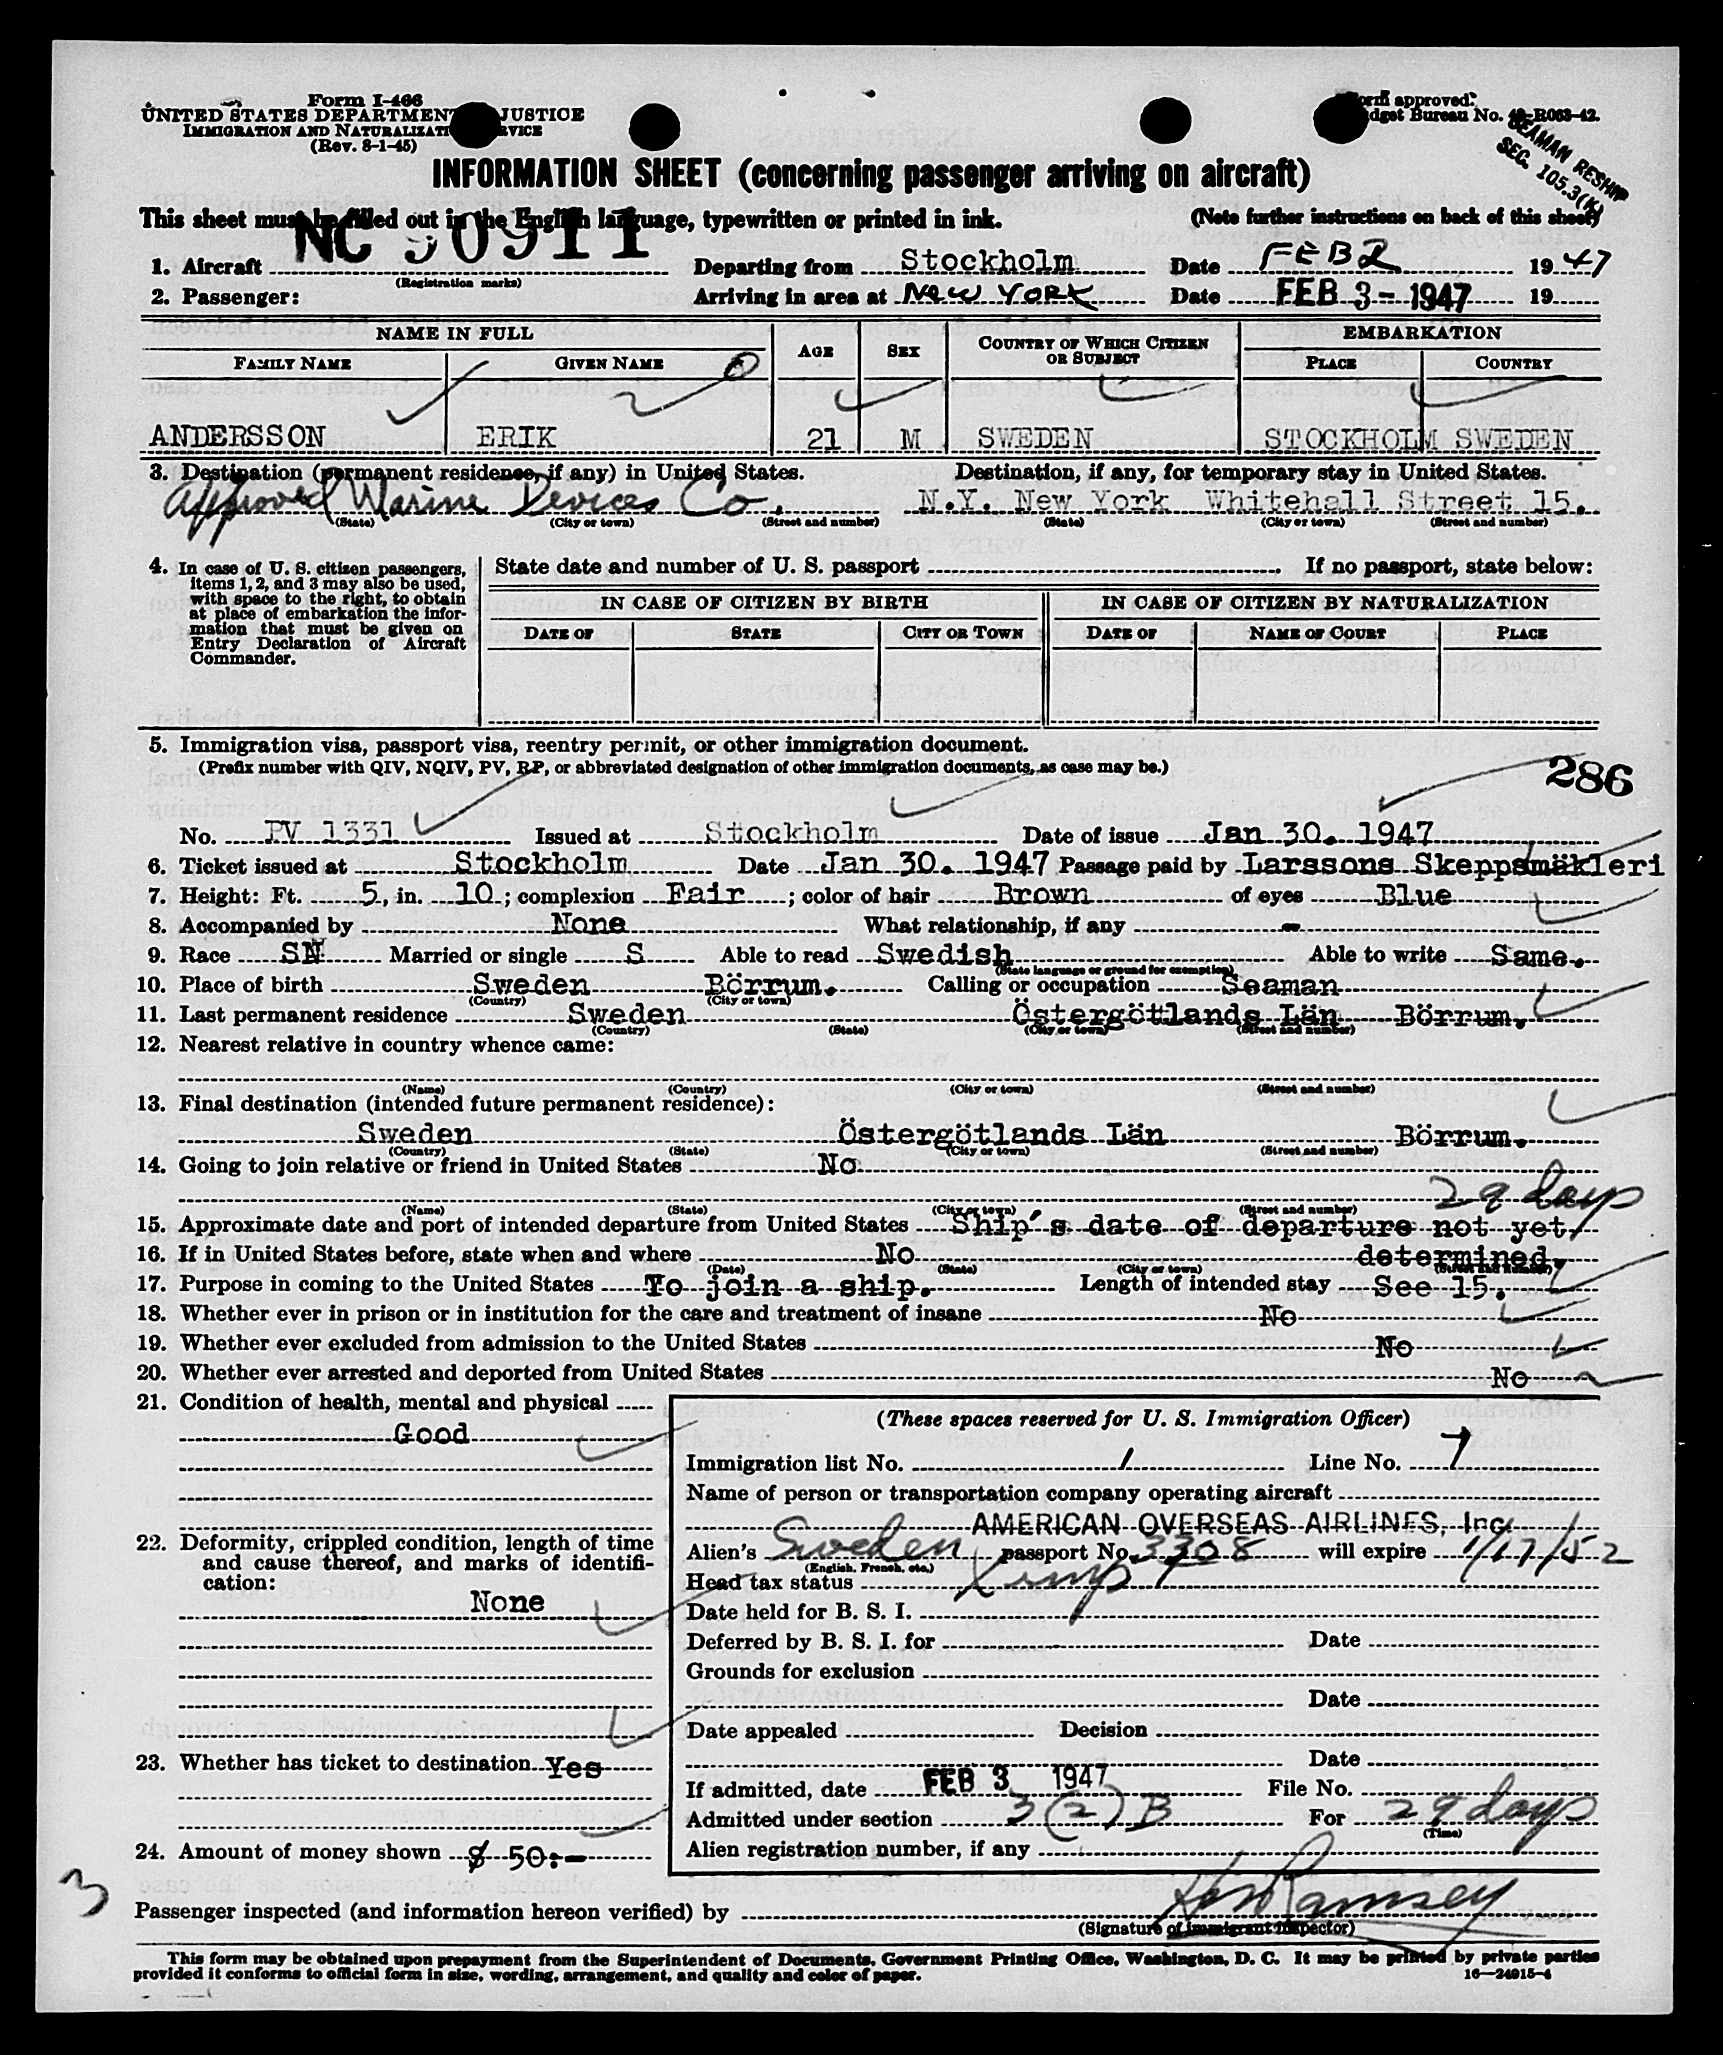 Form I-466
UNITED STATES DEPARTMENT JUSTICE
IMMIGRATION AND NATURALIZATI RVICE
(Rev. 8-1-45)
Form approved.
dget Bureau No. 43-R063-42.
SEAMAN RESHIP
SEC. 105.3(K)
INFORMATION SHEET (concerning passenger arriving on aircraft)
This sheet must be filled out in the English language, typewritten or printed in ink.
(Note further instructions on back of this sheet)
1. Aircraft NC 90911 Departing from Stockholm Date FEB 2 1947
(Registration marks)
2. Passenger: Arriving in area at NEW YORK Date FEB 3 - 1947 19
NAME IN FULL AGE SEX COUNTRY OF WHICH CITIZEN OR SUBJECT EMBARKATION
FAMILY NAME GIVEN NAME PLACE COUNTRY
ANDERSSON ERIK 21 M SWEDEN STOCKHOLM SWEDEN
3. Destination (permanent residence, if any) in United States. Destination, if any, for temporary stay in United States.
Approved Marine Devices Co. N.Y. New York Whitehall Street 15.
(State) (City or town) (Street and number) (State) (City or town) (Street and number)
4. In case of U. S. citizen passengers, items 1, 2, and 3 may also be used, with space to the right, to obtain at place of embarkation the information that must be given on Entry Declaration of Aircraft Commander.
State date and number of U. S. passport If no passport, state below:
IN CASE OF CITIZEN BY BIRTH IN CASE OF CITIZEN BY NATURALIZATION
DATE OF STATE CITY OR TOWN DATE OF NAME OF COURT PLACE
5. Immigration visa, passport visa, reentry permit, or other immigration document.
(Prefix number with QIV, NQIV, PV, RP, or abbreviated designation of other immigration documents, as case may be.)
286
No. PV 1331 Issued at Stockholm Date of issue Jan 30. 1947
6. Ticket issued at Stockholm Date Jan 30. 1947 Passage paid by Larssons Skeppsmäkleri
7. Height: Ft. 5, in. 10; complexion Fair; color of hair Brown of eyes Blue
8. Accompanied by None What relationship, if any -
9. Race SN Married or single S Able to read Swedish Able to write Same.
(State language or ground for exemption)
10. Place of birth Sweden Börrum. Calling or occupation Seaman
(Country) (City or town)
11. Last permanent residence Sweden Östergötlands Län Börrum.
(Country) (State) (City or town) (Street and number)
12. Nearest relative in country whence came:
(Name) (Country) (City or town) (Street and number)
13. Final destination (intended future permanent residence):
Sweden Östergötlands Län Börrum.
(Country) (State) (City or town) (Street and number)
14. Going to join relative or friend in United States No
29 days
(Name) (State) (City or town) (Street and number)
15. Approximate date and port of intended departure from United States Ship's date of departure not yet
16. If in United States before, state when and where No determined.
(Date) (State) (City or town) (Street and number)
17. Purpose in coming to the United States To join a ship. Length of intended stay See 15.
18. Whether ever in prison or in institution for the care and treatment of insane No
19. Whether ever excluded from admission to the United States No
20. Whether ever arrested and deported from United States No
21. Condition of health, mental and physical
Good
22. Deformity, crippled condition, length of time and cause thereof, and marks of identification:
None
23. Whether has ticket to destination Yes
24. Amount of money shown $ 50:-
(These spaces reserved for U. S. Immigration Officer)
Immigration list No. 1 Line No. 7
Name of person or transportation company operating aircraft
AMERICAN OVERSEAS AIRLINES, Inc.
Alien's Sweden passport No. 3308 will expire 1/17/52
(English, French, etc.)
Head tax status
Date held for B. S. I.
Deferred by B. S. I. for Date
Grounds for exclusion
Date
Date appealed Decision
Date
If admitted, date FEB 3 1947 File No.
Admitted under section 3(2)B For 29 days
(Time)
Alien registration number, if any
3
Passenger inspected (and information hereon verified) by Ramsey
(Signature of immigrant inspector)
This form may be obtained upon prepayment from the Superintendent of Documents, Government Printing Office, Washington, D. C. It may be printed by private parties
provided it conforms to official form in size, wording, arrangement, and quality and color of paper. 16—24915-4